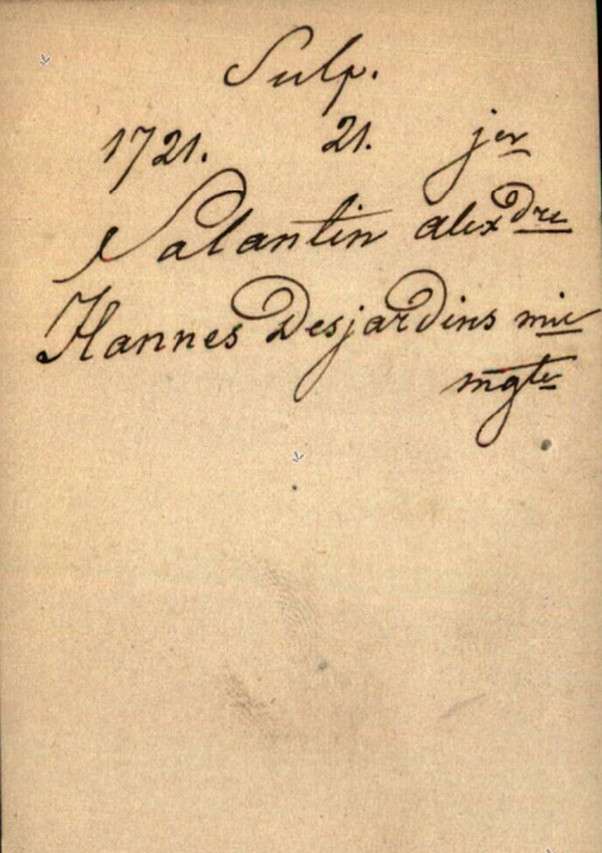 Sulp.
1721. 21. jer
Valantin alexdre
Hannes Desjardins mie
mgte